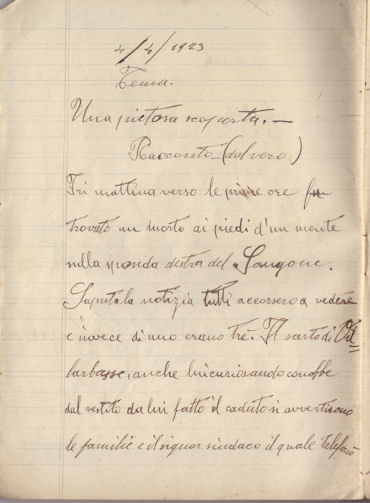 4/4/1923
Tema.
Una pietosa scoperta. —
Racconto (dal vero)
Tri mattina verso le prime ore fu
trovato un morto ai piedi d'un monte
nella sponda destra del Sangone.
Saputa la notizia tutti accorsero a vedere
e invece di uno erano tre. Il sarto di Vil
larbasse, anche lui curiosando conobbe
dal vestito da lui fatto il caduto si avvertirono
le familie e il signor sindaco il quale telefonò